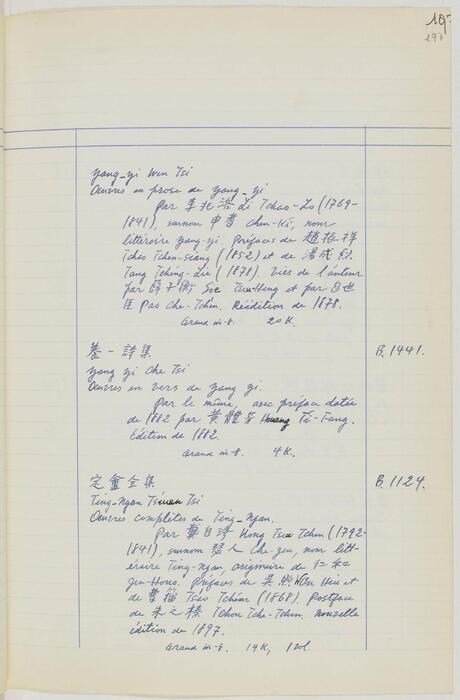 197
197
yang-yi Wen Tsi
Oeuvres en prose de yang-yi
Par 李兆洛 Li Tchao-Lo (1769-
1841), surnom 申耆 Chen-Ki, nom
littéraire yang-yi. Préfaces de 趙振祥
Tchao Tchen-siang (1852) et de 湯成烈
Tang Tch'ing-Lié (1878). Vies de l'auteur
par 薛子衡 Sie Tseu-Heng et par 包世
臣 Pao Che-Tch'en. Réédition de 1878.
Grand in-8. 20 K.
養一詩集 B. 1441.
yang yi Che Tsi
Oeuvres en vers de yang yi.
Par le même, avec préface datée
de 1882 par 黄體芳 Houang Ti-Fang.
Edition de 1882.
Grand in-8. 4 K.
定盦全集 B. 1124.
Ting-Ngan Ts'iuan Tsi
Oeuvres complètes de Ting-Ngan.
Par 龔自珍 Kong Tseu Tchen (1792-
1841), surnom 璱人 Che-jen, nom litt-
éraire Ting-ngan, originaire de 仁和
Jen-Houo. Préfaces de 吳煦 Wou Hiu et
de 曹籀 Ts'ao Tchéou (1868). Postface
de 朱之榛 Tchou Tche-Tchen. nouvelle
édition de 1897.
Grand in-8. 14 K, 1 vol.